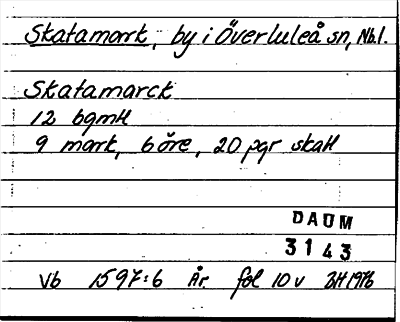 Skatamark, by i Överluleå sn, Nb.l.
Skatamarck
12 bgmtl
9 mark, 6 öre, 20 pgr skatt
DAUM
3143
Vb 1597:6 År fol 10v BH 1976